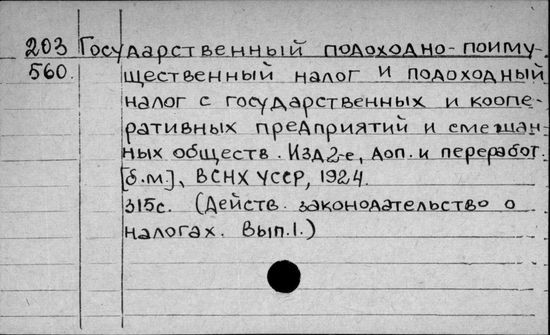 203 Государственный подоходно-поиму-
560. щественный налог и подоходный
налог с государственных и коопе-
ративных предприятий и смешан-
ных обществ. Изд 2-е, доп. и переработ.
[б.м.], ВСНХ УССР, 1924.
315с. (Действ. законодательство о
налогах. Вып.1.)